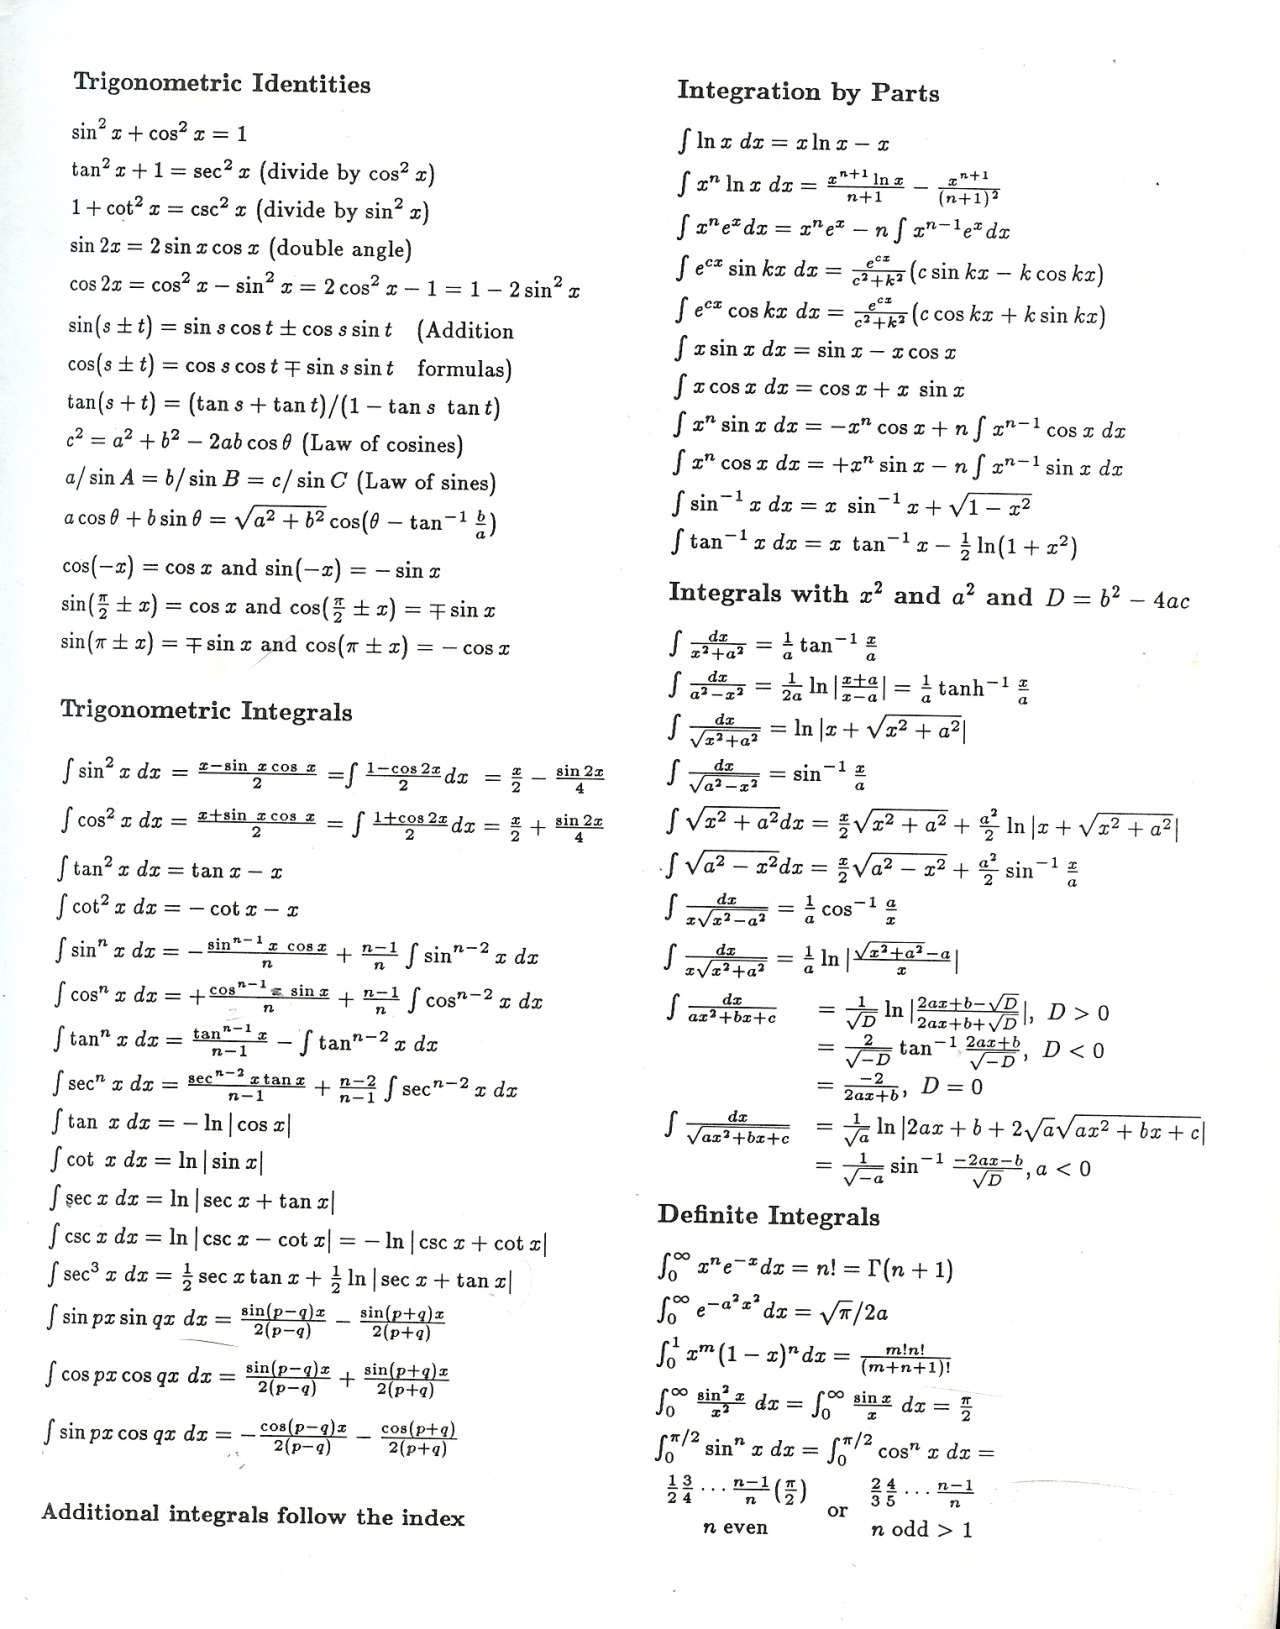 Trigonometric Identities
sin² x + cos² x = 1
tan² x + 1 = sec² x (divide by cos² x)
1 + cot² x = csc² x (divide by sin² x)
sin 2x = 2 sin x cos x (double angle)
cos 2x = cos² x − sin² x = 2 cos² x − 1 = 1 − 2 sin² x
sin(s ± t) = sin s cos t ± cos s sin t (Addition
cos(s ± t) = cos s cos t ∓ sin s sin t formulas)
tan(s + t) = (tan s + tan t)/(1 − tan s tan t)
c² = a² + b² − 2ab cos θ (Law of cosines)
a/ sin A = b/ sin B = c/ sin C (Law of sines)
a cos θ + b sin θ = √(a² + b²) cos(θ − tan⁻¹ b/a)
cos(−x) = cos x and sin(−x) = − sin x
sin(π/2 ± x) = cos x and cos(π/2 ± x) = ∓ sin x
sin(π ± x) = ∓ sin x and cos(π ± x) = − cos x
Trigonometric Integrals
∫ sin² x dx = (x−sin x cos x)/2 = ∫ (1−cos 2x)/2 dx = x/2 − (sin 2x)/4
∫ cos² x dx = (x+sin x cos x)/2 = ∫ (1+cos 2x)/2 dx = x/2 + (sin 2x)/4
∫ tan² x dx = tan x − x
∫ cot² x dx = − cot x − x
∫ sinⁿ x dx = −(sinⁿ⁻¹ x cos x)/n + (n−1)/n ∫ sinⁿ⁻² x dx
∫ cosⁿ x dx = +(cosⁿ⁻¹ x sin x)/n + (n−1)/n ∫ cosⁿ⁻² x dx
∫ tanⁿ x dx = (tanⁿ⁻¹ x)/(n−1) − ∫ tanⁿ⁻² x dx
∫ secⁿ x dx = (secⁿ⁻² x tan x)/(n−1) + (n−2)/(n−1) ∫ secⁿ⁻² x dx
∫ tan x dx = − ln | cos x|
∫ cot x dx = ln | sin x|
∫ sec x dx = ln | sec x + tan x|
∫ csc x dx = ln | csc x − cot x| = − ln | csc x + cot x|
∫ sec³ x dx = 1/2 sec x tan x + 1/2 ln | sec x + tan x|
∫ sin px sin qx dx = sin(p−q)x/2(p−q) − sin(p+q)x/2(p+q)
∫ cos px cos qx dx = sin(p−q)x/2(p−q) + sin(p+q)x/2(p+q)
∫ sin px cos qx dx = −cos(p−q)x/2(p−q) − cos(p+q)/2(p+q)
Additional integrals follow the index
Integration by Parts
∫ ln x dx = x ln x − x
∫ xⁿ ln x dx = (xⁿ⁺¹ ln x)/(n+1) − xⁿ⁺¹/(n+1)²
∫ xⁿeˣdx = xⁿeˣ − n ∫ xⁿ⁻¹eˣdx
∫ e^(cx) sin kx dx = e^(cx)/(c²+k²) (c sin kx − k cos kx)
∫ e^(cx) cos kx dx = e^(cx)/(c²+k²) (c cos kx + k sin kx)
∫ x sin x dx = sin x − x cos x
∫ x cos x dx = cos x + x sin x
∫ xⁿ sin x dx = −xⁿ cos x + n ∫ xⁿ⁻¹ cos x dx
∫ xⁿ cos x dx = +xⁿ sin x − n ∫ xⁿ⁻¹ sin x dx
∫ sin⁻¹ x dx = x sin⁻¹ x + √(1 − x²)
∫ tan⁻¹ x dx = x tan⁻¹ x − 1/2 ln(1 + x²)
Integrals with x² and a² and D = b² − 4ac
∫ dx/(x²+a²) = 1/a tan⁻¹ x/a
∫ dx/(a²−x²) = 1/2a ln |(x+a)/(x−a)| = 1/a tanh⁻¹ x/a
∫ dx/√(x²+a²) = ln |x + √(x² + a²)|
∫ dx/√(a²−x²) = sin⁻¹ x/a
∫ √(x² + a²)dx = x/2 √(x² + a²) + a²/2 ln |x + √(x² + a²)|
∫ √(a² − x²)dx = x/2 √(a² − x²) + a²/2 sin⁻¹ x/a
∫ dx/(x√(x²−a²)) = 1/a cos⁻¹ a/x
∫ dx/(x√(x²+a²)) = 1/a ln |(√(x²+a²)−a)/x|
∫ dx/(ax²+bx+c) = 1/√D ln |(2ax+b−√D)/(2ax+b+√D)|, D > 0
= 2/√−D tan⁻¹ (2ax+b)/√−D, D < 0
= −2/(2ax+b), D = 0
∫ dx/√(ax²+bx+c) = 1/√a ln |2ax + b + 2√a√(ax² + bx + c)|
= 1/√−a sin⁻¹ (−2ax−b)/√D, a < 0
Definite Integrals
∫₀^∞ xⁿe⁻ˣdx = n! = Γ(n + 1)
∫₀^∞ e^(−a²x²)dx = √π/2a
∫₀¹ xᵐ(1 − x)ⁿdx = m!n!/(m+n+1)!
∫₀^∞ sin² x/x² dx = ∫₀^∞ sin x/x dx = π/2
∫₀^(π/2) sinⁿ x dx = ∫₀^(π/2) cosⁿ x dx =
1/2 3/4 ... (n−1)/n (π/2) or 2/3 4/5 ... (n−1)/n
n even n odd > 1